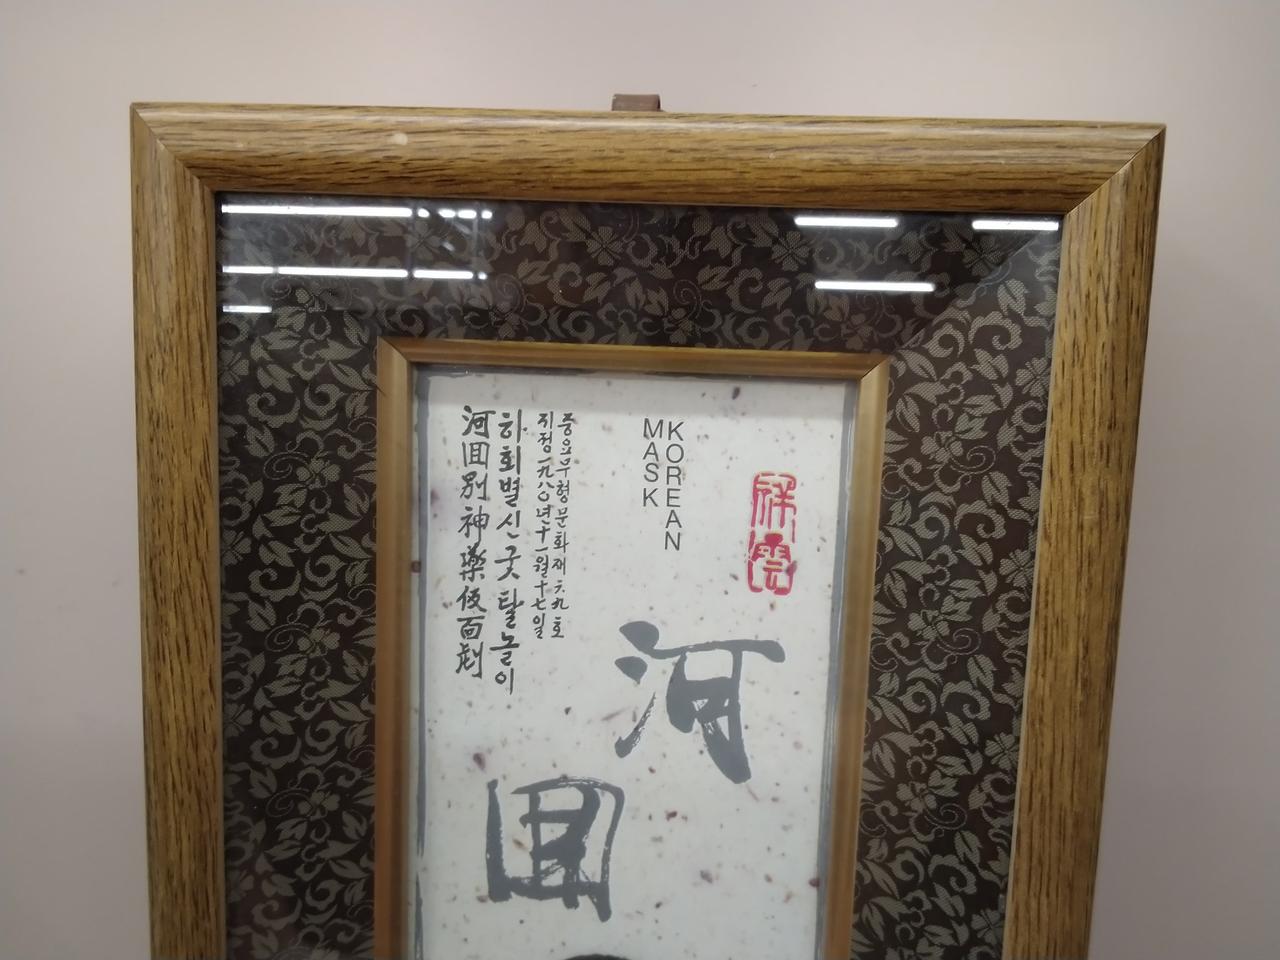 祥雲
KOREAN
MASK
河
回
중요무형문화재 六九호
지정 一九八〇년 十一월 十七일
하회별신굿탈놀이
河回別神樂仮面劇